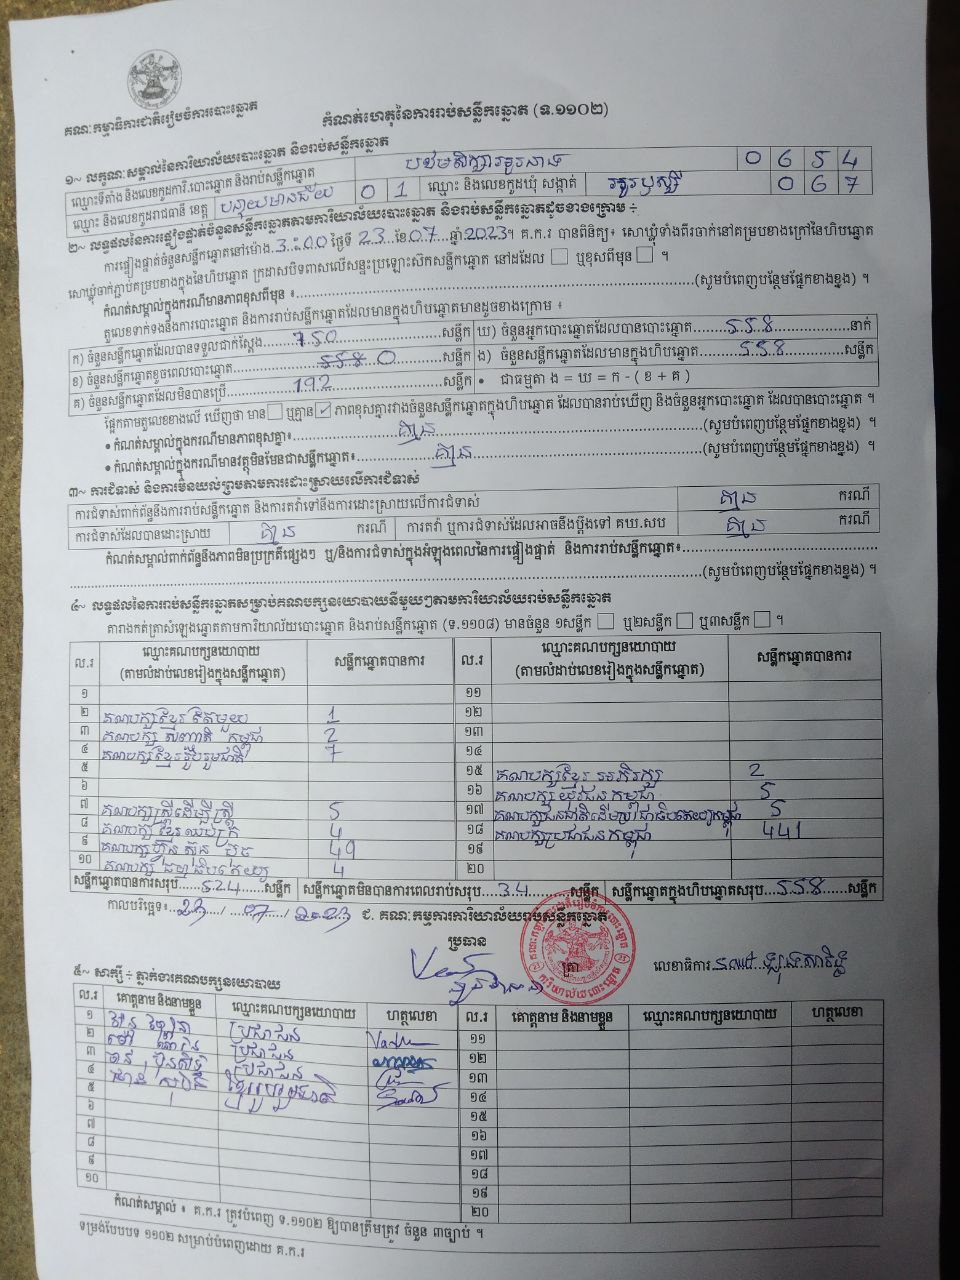 គណៈកម្មាធិការជាតិរៀបចំការបោះឆ្នោត
កំណត់ហេតុនៃការរាប់សន្លឹកឆ្នោត (ទ.១១០២)
១~ លក្ខណៈសម្គាល់នៃការិយាល័យបោះឆ្នោត និងរាប់សន្លឹកឆ្នោត
ឈ្មោះទីតាំង និងលេខកូដការិ.បោះឆ្នោត និងរាប់សន្លឹកឆ្នោត 0 6 5 4
ឈ្មោះ និងលេខកូដរាជធានី ខេត្ត បន្ទាយមានជ័យ 0 1 ឈ្មោះ និងលេខកូដឃុំ សង្កាត់ 0 6 7
២~ លទ្ធផលនៃការផ្ទៀងផ្ទាត់ចំនួនសន្លឹកឆ្នោតតាមការិយាល័យបោះឆ្នោត និងរាប់សន្លឹកឆ្នោតដូចខាងក្រោម ÷
ការផ្ទៀងផ្ទាត់ចំនួនសន្លឹកឆ្នោតនៅម៉ោង 3:00 ថ្ងៃទី 23 ខែ 07 ឆ្នាំ 2023។ គ.ក.រ បានពិនិត្យ៖ សោឃ្លុំទាំងពីរចាក់នៅគម្របខាងក្រៅនៃហិបឆ្នោត
សោឃ្លុំចាក់ភ្ជាប់គម្របខាងក្នុងនៃហិបឆ្នោត ក្រដាសបិទពាសលើសន្ទះប្រឡោះស៊កសន្លឹកឆ្នោត នៅដដែល ឬខុសពីមុន ។
កំណត់សម្គាល់ក្នុងករណីមានភាពខុសពីមុន ៖ (សូមបំពេញបន្ថែមផ្នែកខាងខ្នង) ។
តួលេខទាក់ទងនឹងការបោះឆ្នោត និងការរាប់សន្លឹកឆ្នោតដែលមានក្នុងហិបឆ្នោតមានដូចខាងក្រោម ៖
ក) ចំនួនសន្លឹកឆ្នោតដែលបានទទួលជាក់ស្តែង 750 សន្លឹក ឃ) ចំនួនអ្នកបោះឆ្នោតដែលបានបោះឆ្នោត 558 នាក់
ខ) ចំនួនសន្លឹកឆ្នោតខូចពេលបោះឆ្នោត 0 សន្លឹក ង) ចំនួនសន្លឹកឆ្នោតដែលមានក្នុងហិបឆ្នោត 558 សន្លឹក
គ) ចំនួនសន្លឹកឆ្នោតដែលមិនបានប្រើ 192 សន្លឹក • ជាធម្មតា ង = ឃ = ក - ( ខ + គ )
ផ្អែកតាមតួលេខខាងលើ ឃើញថា មាន ឬគ្មាន ✓ ភាពខុសគ្នារវាងចំនួនសន្លឹកឆ្នោតក្នុងហិបឆ្នោត ដែលបានរាប់ឃើញ និងចំនួនអ្នកបោះឆ្នោត ដែលបានបោះឆ្នោត ។
• កំណត់សម្គាល់ក្នុងករណីមានភាពខុសគ្នា៖ គ្មាន (សូមបំពេញបន្ថែមផ្នែកខាងខ្នង) ។
• កំណត់សម្គាល់ក្នុងករណីមានវត្ថុមិនមែនជាសន្លឹកឆ្នោត៖ គ្មាន (សូមបំពេញបន្ថែមផ្នែកខាងខ្នង) ។
៣~ ការជំទាស់ និងការមិនយល់ព្រមតាមការដោះស្រាយលើការជំទាស់
ការជំទាស់ពាក់ព័ន្ធនឹងការរាប់សន្លឹកឆ្នោត និងការតវ៉ាទៅនឹងការដោះស្រាយលើការជំទាស់ គ្មាន ករណី
ការជំទាស់ដែលបានដោះស្រាយ គ្មាន ករណី ការតវ៉ា ឬការជំទាស់ដែលអាចនឹងប្តឹងទៅ គឃ.សប គ្មាន ករណី
កំណត់សម្គាល់ពាក់ព័ន្ធនឹងភាពមិនប្រក្រតីផ្សេងៗ ឬ/និងការជំទាស់ក្នុងអំឡុងពេលនៃការផ្ទៀងផ្ទាត់ និងការរាប់សន្លឹកឆ្នោត៖
(សូមបំពេញបន្ថែមផ្នែកខាងខ្នង) ។
៤~ លទ្ធផលនៃការរាប់សន្លឹកឆ្នោតសម្រាប់គណបក្សនយោបាយនីមួយៗតាមការិយាល័យរាប់សន្លឹកឆ្នោត
តារាងកត់ត្រាសំឡេងឆ្នោតតាមការិយាល័យបោះឆ្នោត និងរាប់សន្លឹកឆ្នោត (ទ.១១០៨) មានចំនួន ១សន្លឹក ឬ២សន្លឹក ឬ៣សន្លឹក ។
ល.រ ឈ្មោះគណបក្សនយោបាយ (តាមលំដាប់លេខរៀងក្នុងសន្លឹកឆ្នោត) សន្លឹកឆ្នោតបានការ ល.រ ឈ្មោះគណបក្សនយោបាយ (តាមលំដាប់លេខរៀងក្នុងសន្លឹកឆ្នោត) សន្លឹកឆ្នោតបានការ
១ ១១
២ គណបក្សខ្មែរតែមួយ 1 ១២
៣ គណបក្ស សញ្ជាតិ កម្ពុជា 2 ១៣
៤ គណបក្សខ្មែររួបរួមជាតិ 7 ១៤
៥ ១៥ គណបក្សខ្មែរ អភិរក្ស 2
៦ ១៦ គណបក្ស យុវជន កម្ពុជា 5
៧ គណបក្សស្ត្រីដើម្បីស្ត្រី 5 ១៧ 5
៨ គណបក្ស ខ្មែរឈប់ក្រ 4 ១៨ គណបក្សប្រជាជន កម្ពុជា 441
៩ គណបក្សហ្វ៊ុនស៊ិនប៉ិច 49 ១៩
១០ 4 ២០
សន្លឹកឆ្នោតបានការសរុប 524 សន្លឹក សន្លឹកឆ្នោតមិនបានការពេលរាប់សរុប 34 សន្លឹក សន្លឹកឆ្នោតក្នុងហិបឆ្នោតសរុប 558 សន្លឹក
កាលបរិច្ឆេទ៖ 23 / 07 / 2023 ជ. គណៈកម្មការការិយាល័យរាប់សន្លឹកឆ្នោត
ប្រធាន ត្រា លេខាធិការ
៥~ សាក្សី ÷ ភ្នាក់ងារគណបក្សនយោបាយ
ល.រ គោត្តនាម និងនាមខ្លួន ឈ្មោះគណបក្សនយោបាយ ហត្ថលេខា ល.រ គោត្តនាម និងនាមខ្លួន ឈ្មោះគណបក្សនយោបាយ ហត្ថលេខា
១ ប្រជាជន ១១
២ ប្រជាជន ១២
៣ ប្រជាជន ១៣
៤ ខ្មែររួបរួមជាតិ ១៤
៥ ១៥
៦ ១៦
៧ ១៧
៨ ១៨
៩ ១៩
១០ ២០
កំណត់សម្គាល់ ៖ គ.ក.រ ត្រូវបំពេញ ទ.១១០២ ឱ្យបានត្រឹមត្រូវ ចំនួន ៣ច្បាប់ ។
ទម្រង់បែបបទ ១១០២ សម្រាប់បំពេញដោយ គ.ក.រ